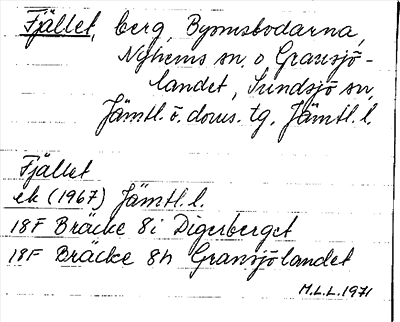 Fjället, berg, Bynnsbodarna,
Nyhems sn. o Gransjö-
landet, Sundsjö sn,
Jämtl. ö. doms. tg, Jämtl. l.
Fjället
ek (1967) Jämtl. l.
18F Bräcke 8i Digerberget
18F Bräcke 8h Gransjölandet
M.L.L. 1971